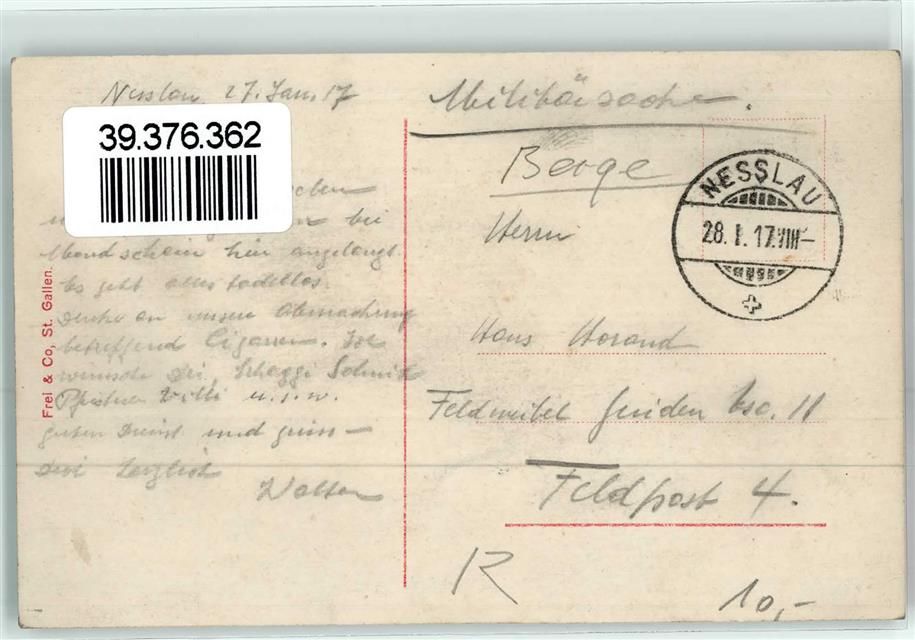 Nesslau, 27. Jan. 17
39.376.362
bei
Mondschein hier angelangt.
Es geht alles tadellos.
Denke an unsere Abmachung
betreffend Cigarren. Ich
wünsche Dir, Schaggi Schmid
Willi u.s.w.
guten Dienst und grüss-
herzlich
Walter
Frei & Co, St. Gallen.
Militärsache.
Berge
NESSLAU
28. I. 17. VIII–
Herrn
Hans Morand
Feldweibel II
Feldpost 4.
R
10,-